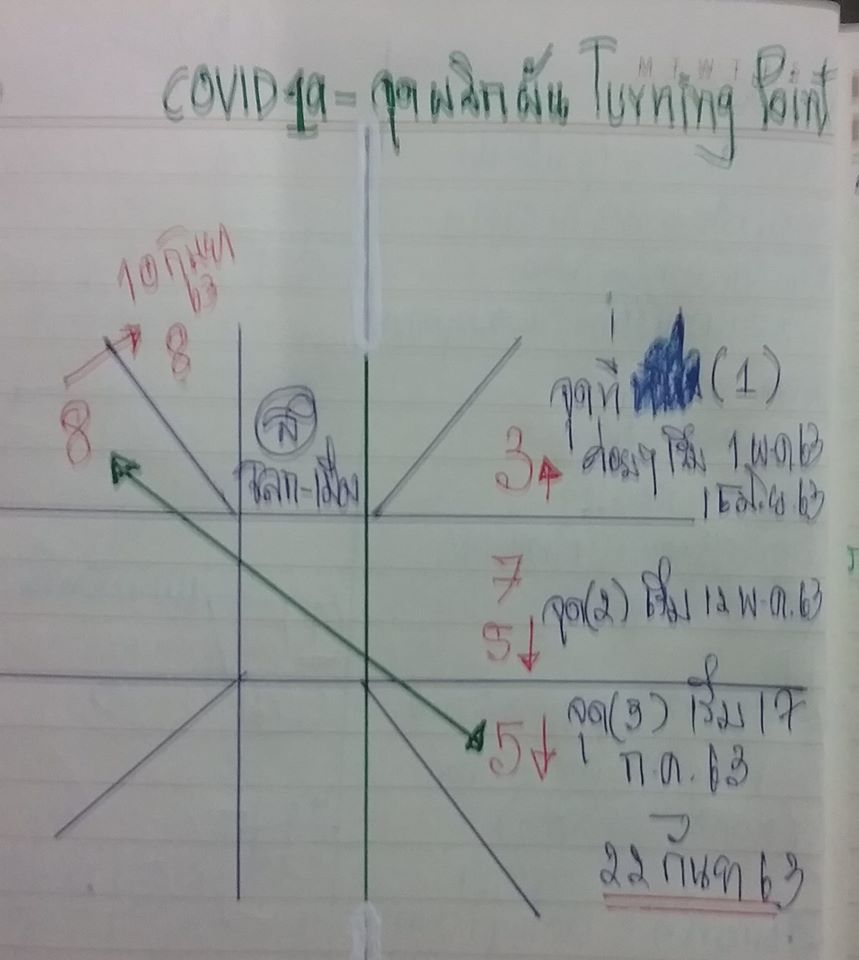 COVID19 = จุดพลิกผัน Turning Point
10 กันยา
63
8
8
ส
โลก-เมือง
จุดที่ (1)
3 ค่อยๆ เริ่ม 1 พ.ค 63
63
7
จุด(2) เริ่ม 12 พ.ค. 63
5
5 จุด(3) เริ่ม 17
ก.ค. 63
22 กันยา 63